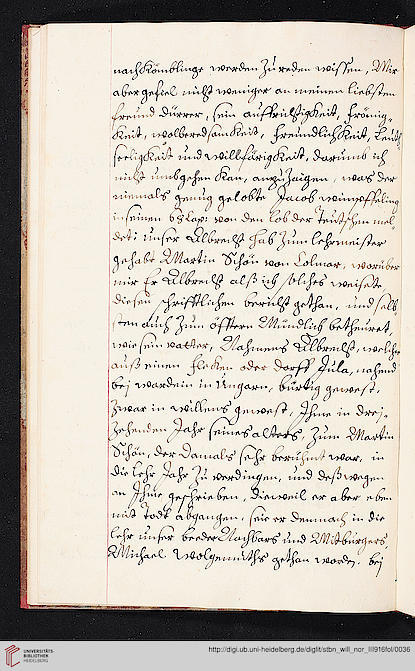 nachkömblinge werden Zu reden wissen, Mir
aber gefiel nichts weniger an meinem liebsten
freund dürrer, sein auffrichtigkeit, frömig-
keit, wolberedsamkeit, freundlichkeit, Leudt-
seeligkeit und willfärigkeit, darumb ich
nicht umbgehen kan, anzuzaigen, was der
niemals genug gelobte Jacob wimpffeling
in seinem 68 Cap: von den lob der Teutschen mel-
det: unser Albrecht hab Zum lehrmeister
gehabt Martin Schön von Colmar, worüber
mir Er Albrecht alß ich solches weisete
diesen schrifftlichen bericht gethan, und selb-
sten auch Zum öfftern Mündlich betheuret,
wie sein vatter, Nahmens Albrecht, welcher
auß einem flecken oder dorff Jula, nahend
bej wardein in Ungarn, bürtig gewest,
Zwar in willens gewest, Ihne in drej-
zehenden Jahr seines alters, Zum Martin
Schön, der damals sehr berühmt war, in
die lehr Jahr Zu verdingen, und deßwegen
an Ihne geschrieben, dieweil er aber eben
mit Todt abgangen, seie er dennoch in die
lehr unser beeder Nachbars und Mitburgers
Michael Wolgemuths gethan worden, bej
UNIVERSITÄTS-
BIBLIOTHEK
HEIDELBERG
http://digi.ub.uni-heidelberg.de/diglit/stbn_will_nor_III916fol/0036